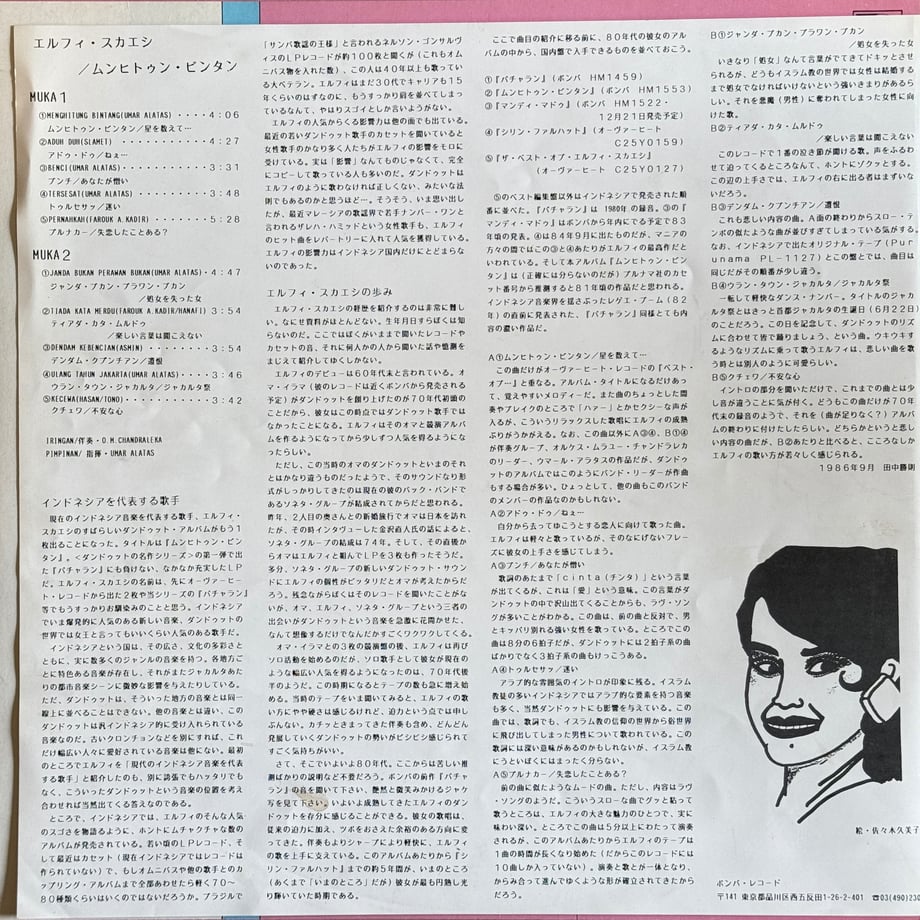 エルフィ・スカエシ
／ムンヒトゥン・ビンタン
MUKA 1
①MENGHITUNG BINTANG(UMAR ALATAS)・・・・4:06
ムンヒトゥン・ビンタン／星を数えて…
②ADUH DUH(SLAMET)・・・・・・・・・・4:27
アドゥ・ドゥ／ねぇ…
③BENCI(UMAR ALATAS)・・・・・・・・・3:31
ブンチ／あなたが憎い
④TERSESAT(UMAR ALATAS)・・・・・・・3:48
トゥルセサッ／迷い
⑤PERNAHKAH(FAROUK A.KADIR)・・・・・5:28
プルナカー／失恋したことある？
MUKA 2
①JANDA BUKAN PERAWAN BUKAN(UMAR ALATAS)・4:47
ジャンダ・ブカン・プラワン・ブカン
／処女を失った女
②TIADA KATA MERDU(FAROUK A.KADIR/HANAFI)3:54
ティアダ・カタ・ムルドゥ
／楽しい言葉は聞こえない
③DENDAM KEBENCIAN(ASMIN)・・・・・・3:54
デンダム・クブンチアン／遺恨
④ULANG TAHUN JAKARTA(UMAR ALATAS)・・3:46
ウラン・タウン・ジャカルタ／ジャカルタ祭
⑤KECEWA(HASAN/TONO)・・・・・・・・・3:42
クチェワ／不安な心
IRINGAN/伴奏・O.M.CHANDRALEKA
PIMPINAN/ 指揮・UMAR ALATAS
インドネシアを代表する歌手
現在のインドネシア音楽を代表する歌手、エルフィ・
スカエシのすばらしいダンドゥット・アルバムがもう1
枚出ることになった。タイトルは『ムンヒトゥン・ビン
タン』。＜ダンドゥットの名作シリーズ＞の第一弾で出
た『バチャラン』にも負けない、なかなか充実したLP
だ。エルフィ・スカエシの名前は、先にオーヴァーヒー
ト・レコードから出た2枚や当シリーズの『バチャラン』
等でもうすっかりお馴染みのことと思う。インドネシア
でいま爆発的に人気のある新しい音楽、ダンドゥットの
世界では女王と言ってもいいくらい人気のある歌手だ。
インドネシアという国は、その広さ、文化の多彩さと
ともに、実に数多くのジャンルの音楽を持つ。各地方ご
とに特色ある音楽が存在し、それがまたジャカルタあた
りの都市音楽シーンに微妙な影響を与えたりしている。
ただ、ダンドゥットは、そういった地方の音楽とは同一
線上に並べることはできない。他の音楽とは違い、この
ダンドゥットは汎インドネシア的に受け入れられている
音楽なのだ。古いクロンチョンなどを別にすれば、これ
だけ幅広い人々に愛好されている音楽は他にない。最初
のところでエルフィを「現代のインドネシア音楽を代表
する歌手」と紹介したのも、別に誇張でもハッタリでも
なく、こういったダンドゥットという音楽の位置を考え
合わせれば当然出てくる答えなのである。
ところで、インドネシアでは、エルフィのそんな人気
のスゴさを物語るように、ホントにムチャクチャな数の
アルバムが発売されている。若い頃のLPレコード、そ
して最近はカセット（現在インドネシアではレコードは
作られていない）で、もしオムニバスや他の歌手とのカ
ップリング・アルバムまで全部あわせたら軽く70～
80種類くらいはいくのではないだろうか。ブラジルで
「サンバ歌謡の王様」と言われるネルソン・ゴンサルヴ
ィスのLPレコードが約100枚と聞くが（これもオム
ニバス物を入れた数）、この人は40年以上も歌ってい
る大ベテラン。エルフィはまだ30代でキャリアも15
年くらいのはずなのに、もうすっかり肩を並べてしまっ
ているなんて、やはりスゴイとしか言いようがない。
エルフィの人気からくる影響力は他の面でも出ている。
最近の若いダンドゥット歌手のカセットを聞いていると
女性歌手のかなり多く人たちがエルフィの影響をモロに
受けている。実は「影響」なんてものじゃなくて、完全
にコピーして歌っている人も多いのだ。ダンドゥットは
エルフィのように歌わなければ正しくない、みたいな法
則でもあるのかと思うほど…。そうそう、いま思い出し
たが、最近マレーシアの歌謡界で若手ナンバー・ワンと
言われるザレハ・ハミッドという女性歌手も、エルフィ
のヒット曲をレパートリーに入れて人気を獲得している。
エルフィの影響力はインドネシア国内だけにとどまらな
いのであった。
エルフィ・スカエシの歩み
エルフィ・スカエシの経歴を紹介するのは非常に難し
い。なにせ資料がほとんどない。生年月日すらぼくは知
らないのだ。ここではぼくがいままで聞いたレコードや
カセットの音、それに何人かの人から聞いた話や憶測を
まじえて紹介してゆくしかない。
エルフィのデビューは60年代末と言われている。オ
マ・イラマ（彼のレコードは近くボンバから発売される
予定）がダンドゥットを創り上げたのが70年代初頭の
ことだから、彼女はこの時点ではダンドゥット歌手では
なかったことになる。エルフィはそのオマと競演アルバ
ムを作るようになってから少しずつ人気を得るようにな
ったらしい。
ただし、この当時のオマのダンドゥットといまのそれ
とはかなり違うものだったようで、そのサウンドなり形
式がしっかりしてきたのは現在の彼のバック・バンドで
あるソネタ・グループが結成されてからだと思われる。
昨年、2人目の奥さんとの新婚旅行でオマは日本を訪れ
たが、その時インタヴューした金沢直人氏の話によると、
ソネタ・グループの結成は74年。そして、その直後か
らオマはエルフィと組んでLPを3枚も作ったそうだ。
多分、ソネタ・グループの新しいダンドゥット・サウン
ドにエルフィの個性がピッタリだとオマが考えたからだ
ろう。残念ながらぼくはそのレコードを聞いたことがな
いが、オマ、エルフィ、ソネタ・グループという三者の
出会いがダンドゥットという音楽を急激に花開かせた、
なんて想像するだけでなんだかすごくワクワクしてくる。
オマ・イラマとの3枚の競演盤の後、エルフィは再び
ソロ活動を始めるのだが、ソロ歌手として彼女が現在の
ような幅広い人気を得るようになったのは、70年代後
半のようだ。この時期になるとテープの数も急に増え始
める。当時のテープをいま聞いてみると、エルフィの歌
い方にやや硬さは感じるけれど、迫力という点では申し
ぶんない。カチッときまってきた伴奏も含め、どんどん
発展していくダンドゥットの勢いがビシビシ感じられて
すごく気持ちがいい。
さて、そこでいよいよ80年代。ここからは苦しい推
測ばかりの説明など不要だろう。ボンバの前作『バチャ
ラン』の音を聞いて下さい、艶然と微笑みかけるジャケ
写を見て下さい。いよいよ成熟してきたエルフィのダン
ドゥットを存分に感じることができる。彼女の歌唱は、
従来の迫力に加え、ツボをおさえた余裕のある方向に変
ってきた。伴奏もよりシャープにより軽快に、エルフィ
の歌を上手に支えている。このアルバムあたりから『シ
リン・ファルハット』までの約5年間が、いまのところ
（あくまで「いまのところ」だが）彼女が最も円熟し光
り輝いていた時期である。
ここで曲目の紹介に移る前に、80年代の彼女のアル
バムの中から、国内盤で入手できるものを並べておこう。
①『バチャラン』（ボンバ HM1459）
②『ムンヒトゥン・ビンタン』（ボンバ HM1553）
③『マンディ・マドゥ』（ボンバ HM1522・
12月21日発売予定）
④『シリン・ファルハット』（オーヴァーヒート
C25Y0159）
⑤『ザ・ベスト・オブ・エルフィ・スカエシ』
（オーヴァーヒート C25Y0127）
⑤のベスト編集盤以外はインドネシアで発売された順
番に並べた。『バチャラン』は 1980年の録音。③の『
マンディ・マドゥ』はボンバから年内にでる予定で83
年頃の発表。④は84年9月に出たものだが、マニアの
方々の間ではこの③と④あたりがエルフィの最高作だと
いわれている。そして本アルバム『ムンヒトゥン・ビン
タン』は（正確には分らないのだが）プルナマ社のカセ
ット番号から推測すると81年頃の作品だと思われる。
インドネシア音楽界を揺さぶったレゲエ・ブーム（82
年）の直前に発表された、『バチャラン』同様とても内
容の濃い作品だ。
A①ムンヒトゥン・ビンタン／星を数えて…
この曲だけがオーヴァーヒート・レコードの『ベスト・
オブ…』と重なる。アルバム・タイトルになるだけあっ
て、覚えやすいメロディーだ。また曲のちょっとした間
奏やブレイクのところで「ハァー」とかセクシーな声が
入るが、こういうリラックスした歌唱にエルフィの成熟
ぶりがうかがえる。なお、この曲以外にA③④、B①④
が伴奏グループ、オルケス・ムラユー・チャンドラレカ
のリーダー、ウマール・アラタスの作品だが、ダンドゥ
ットのアルバムではこのようにバンド・リーダーが作曲
もする場合が多い。ひょっとして、他の曲もこのバンド
のメンバーの作品なのかもしれない。
A②アドゥ・ドゥ／ねぇ…
自分から去ってゆこうとする恋人に向けて歌った曲。
エルフィは軽々と歌っているが、そのなにげないフレー
ズに彼女の上手さを感じてしまう。
A③ブンチ／あなたが憎い
歌詞のあたまで「cinta（チンタ）」という言葉
が出てくるが、これは「愛」という意味。この言葉がダ
ンドゥットの中で沢山出てくることからも、ラヴ・ソン
グが多いことがわかる。この曲は、前の曲と反対で、男
とキッパリ別れる強い女性を歌っている。ところでこの
曲は8分の6拍子だが、ダンドゥットには2拍子系の曲
ばかりでなく3拍子系の曲もけっこうある。
A④トゥルセサッ／迷い
アラブ的な雰囲気のイントロが印象に残る。イスラム
教徒の多いインドネシアではアラブ的な要素を持つ音楽
も多く、当然ダンドゥットにも影響を与えている。この
曲では、歌詞でも、イスラム教の信仰の世界から俗世界
に飛び出してしまった男性について歌われている。この
歌詞には深い意味があるのかもしれないが、イスラム教
にうといぼくにはまったく分らない。
A⑤プルナカー／失恋したことある？
前の曲に似たようなムードの曲。ただし、内容はラヴ
・ソングのようだ。こういうスローな曲でグッと粘って
歌うところは、エルフィの大きな魅力のひとつで、実に
味わい深い。ところでこの曲は5分以上にわたって演奏
されるが、このアルバムあたりからエルフィのテープは
1曲の時間が長くなり始めた（だからこのレコードには
10曲しか入っていない）。演奏と歌とが一体となり、
からみ合って進んでゆくような形が確立されてきたから
だろう。
B①ジャンダ・ブカン・プラワン・ブカン
／処女を失った女
いきなり「処女」なんて言葉がでてきてドキッとさせ
られるが、どうもイスラム教の世界では女性は結婚する
まで処女でなければいけないという強いきまりがあるら
しい。それを悪魔（男性）に奪われてしまった女性に向
けた歌。
B②ティアダ・カタ・ムルドゥ
／楽しい言葉は聞こえない
このレコードで1番の泣き節が聞ける歌。声をふるわ
せて迫ってくるところなんて、ホントにゾクッとする。
この辺の上手さでは、エルフィの右に出る者はまずいな
いだろう。
B③デンダム・クブンチアン／遺恨
これも悲しい内容の曲。A面の終わりからスロー・テ
ンポの似たような曲が並びすぎてしまっている気がする。
なお、インドネシアで出たオリジナル・テープ（Pur
unama PL-1127）とこの盤とでは、曲目は
同じだがその順番が少し違う。
B④ウラン・タウン・ジャカルタ／ジャカルタ祭
一転して軽快なダンス・ナンバー。タイトルのジャカ
ルタ祭とはきっと首都ジャカルタの生誕日（6月22日）
のことだろう。この日を記念して、ダンドゥットのリズ
ムに合わせて皆で踊りましょう、という曲。ウキウキす
るようなリズムに乗って歌うエルフィは、悲しい曲を歌
う時とは別人のように可愛らしい。
B⑤クチェワ／不安な心
イントロの部分を聞いただけで、これまでの曲とは少
し音が違うことに気が付く。どうもこの曲だけが70年
代末の録音のようで、それを（曲が足りなく？）アルバ
ムの終わりに付けたしたらしい。どちらかというと悲し
い内容の曲だが、B②あたりと比べると、こころなしか
エルフィの歌い方が若々しく感じられる。
1986年9月 田中勝則
絵・佐々木久美子
ボンバ・レコード
〒141 東京都品川区西五反田1-26-2-401 ☎03(490)